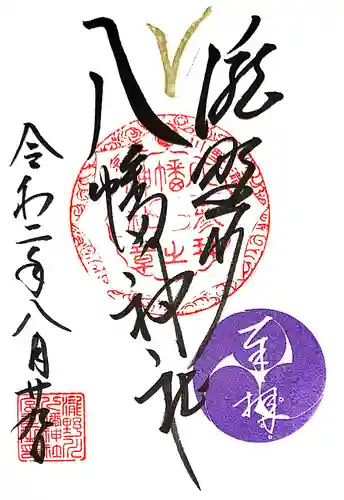 瀧野川
八幡神社
令和二年八月廿日
奉拝
瀧野川
八幡神社